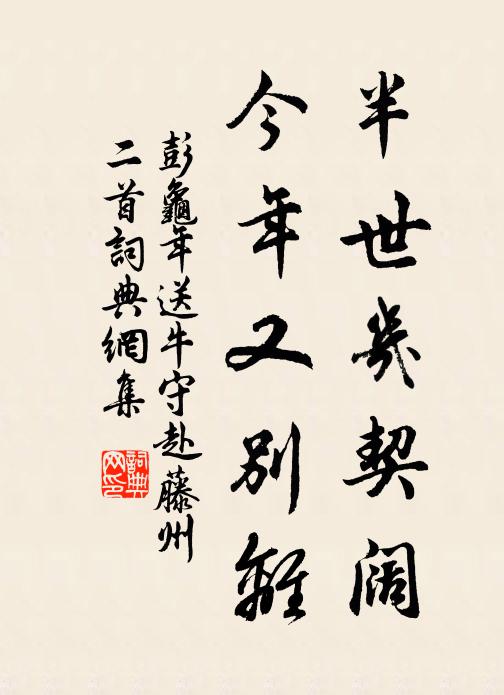 半世幾契阔
今年又别離
彭龜年送牛守赴藤州
二首詞典網集
詞典
网印